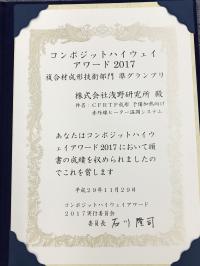 コンポジットハイウェイ
アワード2017
複合材成形技術部門 準グランプリ
株式会社浅野研究所 殿
件名：CFRTP成形 予備加熱向け
赤外線ヒーター温調システム
あなたはコンポジットハイウ
ェイアワード2017において頭
書の成績を収められましたの
でこれを賞します
平成29年11月29日
コンポジットハイウェイアワード
2017実行委員会
委員長 石川 隆司